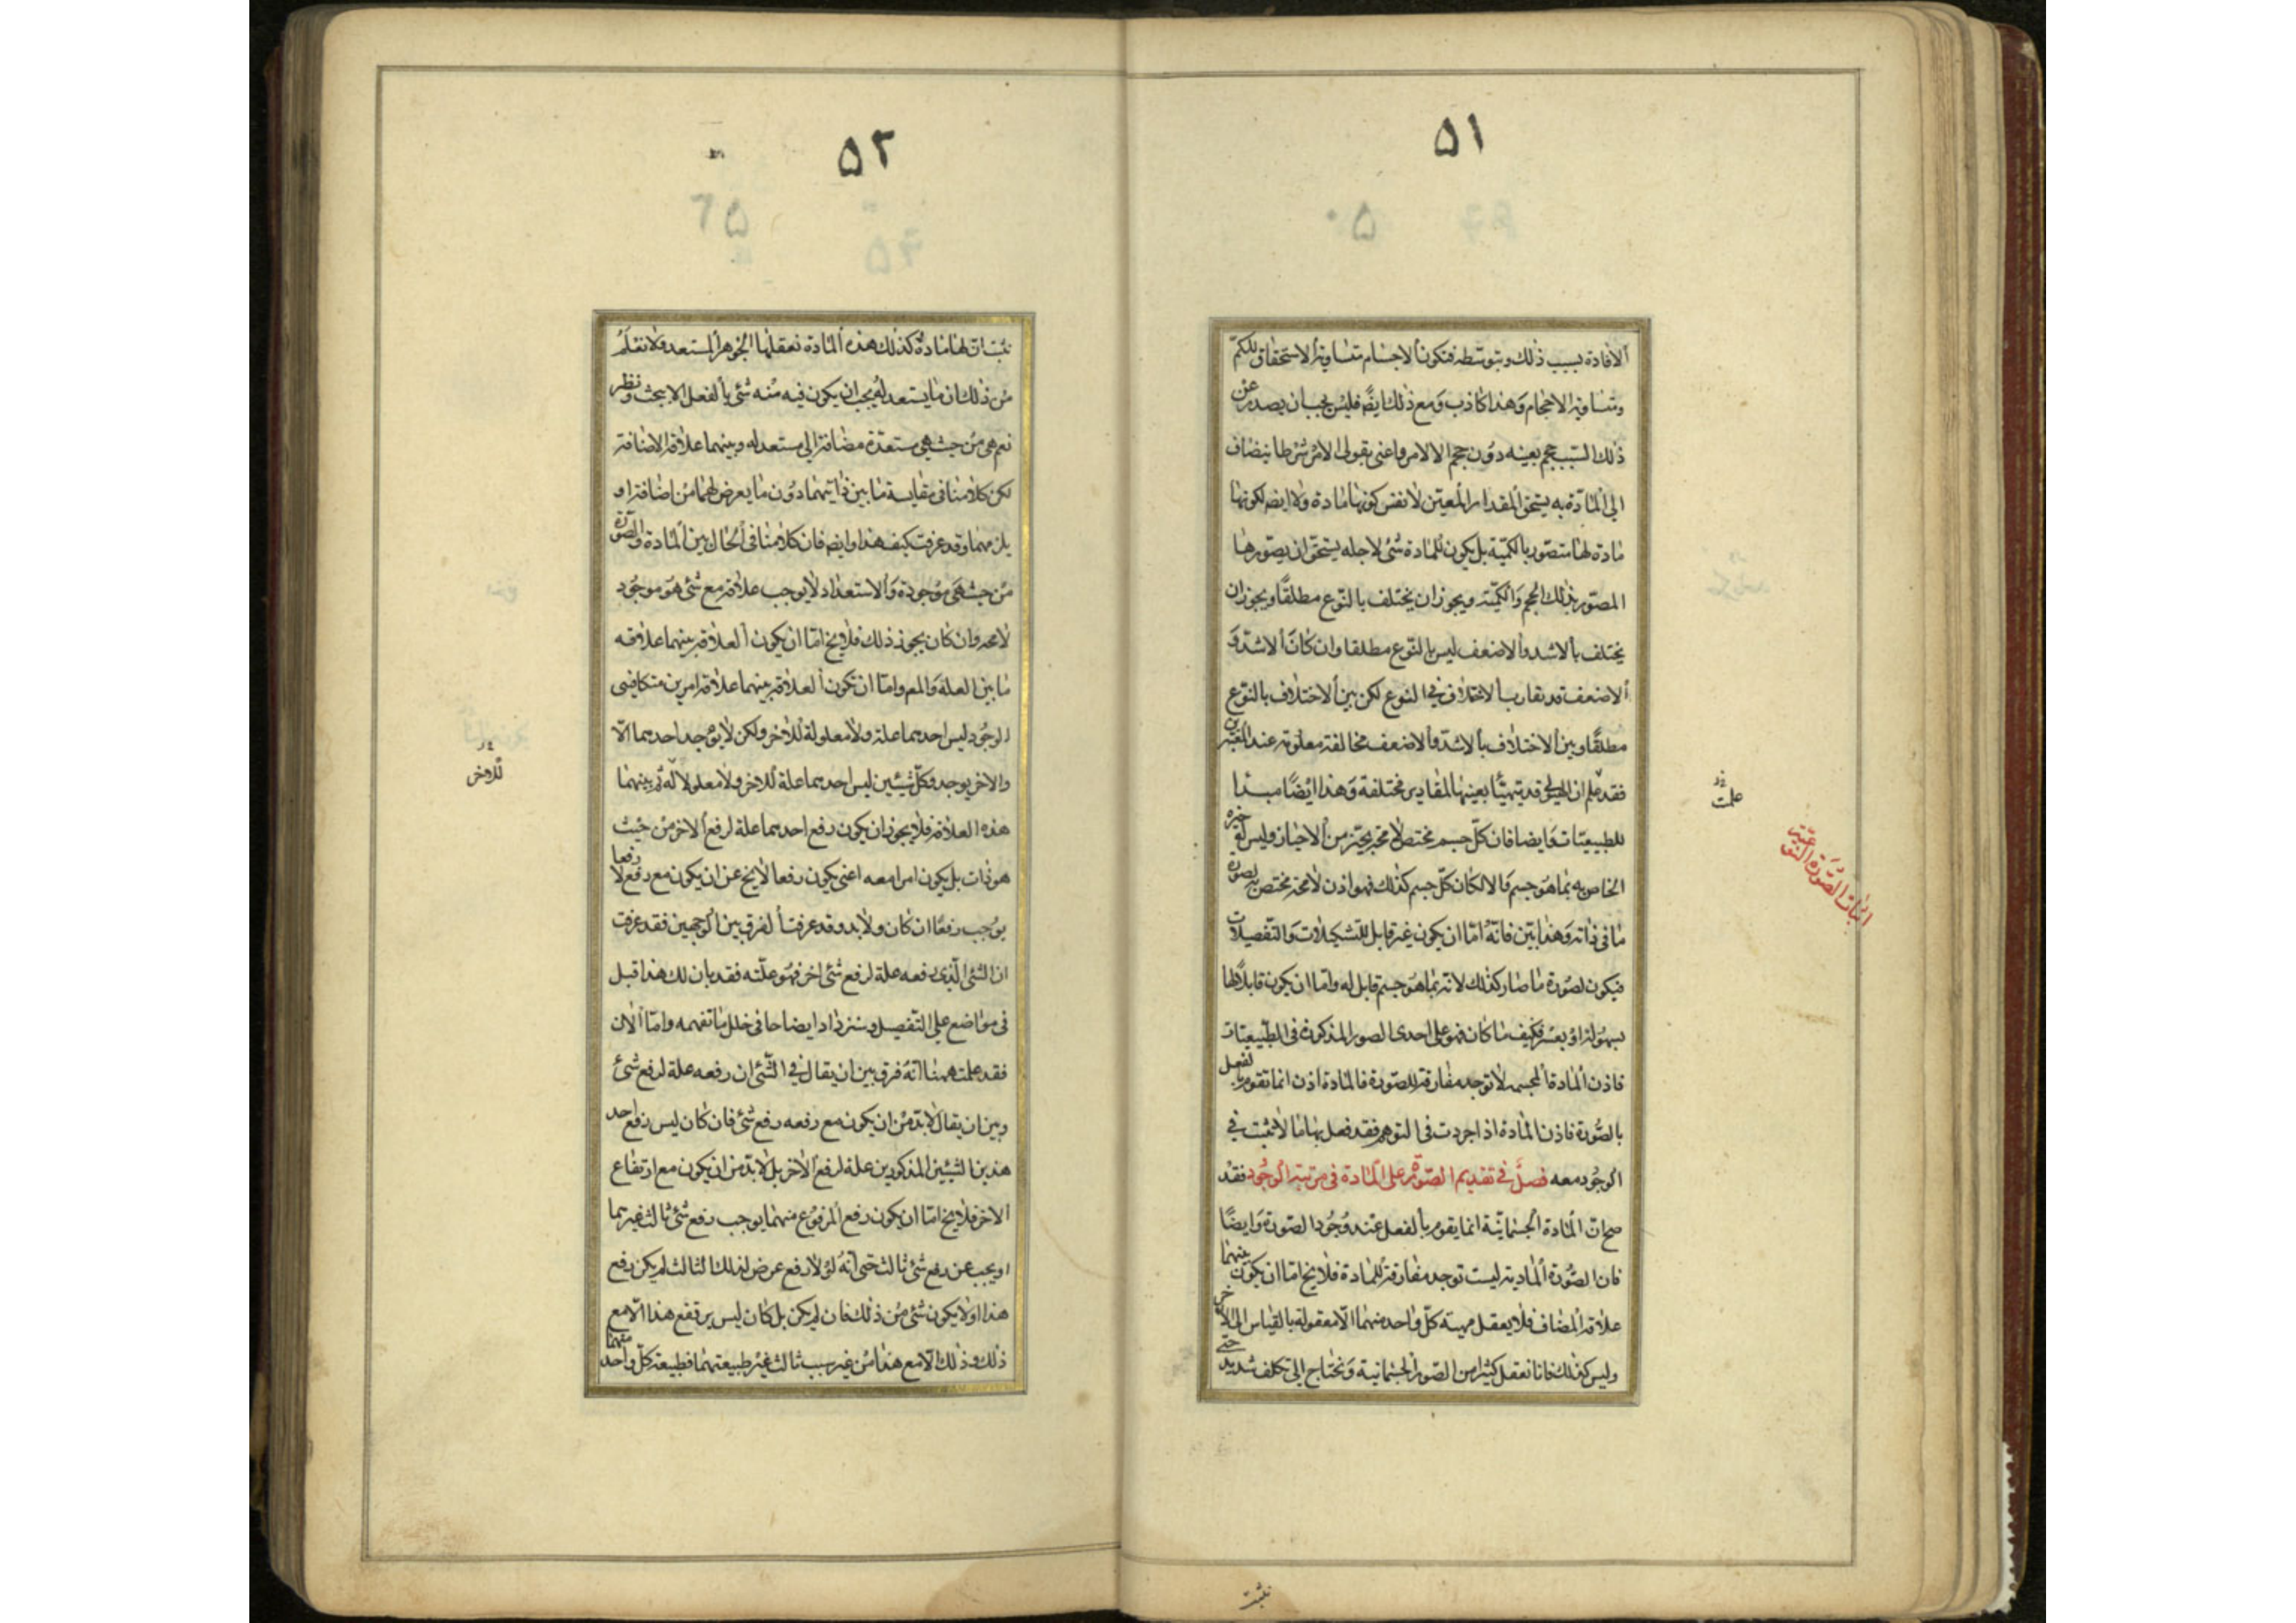 ٥١
الافادة بسبب ذلك وبتوسطه فتكون الاجسام متساوية الاستحقاق للكم
ومتساوية الاحجام وهذا كاذب ومع ذلك ايضً فليس يجب ان يصدر عن
ذلك السبب حجم بعينه دون حجم الا لامر واعنى بقولى لامر شرطا ينضاف
الى المادة به يستحق المقدار المعين لا نفس كونها مادة ولا ايضا لكونها
مادة لها متصور بالكمية بل يكون للمادة شئ لاجله يستحق ان يصورها
المصور بذلك الحجم والكمية ويجوز ان يختلف بالنوع مطلقا ويجوز ان
يختلف بالاشد والاضعف ليس بالنوع مطلقا وان كان الاشد و
الاضعف قد تقارب الاختلاف فى النوع لكن بين الاختلاف بالنوع
مطلقا وبين الاختلاف بالاشد والاضعف مخالفة معلومة عند المعتبرين
فقد علم ان الهيولى قد يتهيّأ بعينها لمقادير مختلفة وهذا ايضًا مبدا
للطبيعيّات وايضا فان كل جسم يختص لا محة بحيّز من الاحياز وليس له حيزه
الخاص به بما هو جسم والا لكان كل جسم كذلك فهو اذن لا محة مختص به لصورة
ما فى ذاته وهذا بيّن فانّه امّا ان يكون غير قابل للتشكيلات والتفصيلات
فيكون لصورة ما صار كذلك لانه بما هو جسم قابل له وامّا ان يكون قابلا لها
بسهولة او بعسر فكيف ما كان فهو على احدى الصور المذكورة فى الطبيعيّات
فاذن المادة المجسمه لا توجد مفارقة للصورة فالمادة اذن انما تقوم بالفعل
بالصّورة فاذن المادة اذا جردت فى التوهم فقد فعل بها ما لا يثبت فى
الوجود معه فصل فى تقديم الصّورة على المادة فى مرتبة الوجود فقد
صح ان المادة الجسمانيّة انما يقوم بالفعل عند وجود الصّورة وايضًا
فان الصّورة المادية ليست توجد مفارقة للمادة فلا يخ امّا ان يكون بينهما
علاقة المضاف فلا يعقل مهية كل واحد منهما الا معقولة بالقياس الى الاخر
وليس كذلك فانا نعقل كثيرا من الصور الجسمانية ونحتاج الى تكلف شديد حتى
علمت
اثبات الصّورة النوعيّة
نثبت
٥٢
نثبت ان لها مادة كذلك هذه المادة نعقلها الجوهر المستعد ولا نعلم
من ذلك ان ما يستعد له يجب ان يكون فيه منه شئ بالفعل الا ببحث ونظر
نعم هى من حيث هى مستعدة مضافة الى مستعد له وبينهما علاقة الاضافة
لكن كلامنا فى مقايسة ما بين ذاتيهما دون ما يعرض لهما من اضافة او
يلزمهما وقد عرفت كيف هذا وايضا فان كلامنا فى الحال بين المادة والصورة
من حيث هى موجودة والاستعداد لا يوجب علاقة مع شئ هو موجود
لا محة وان كان يجوز ذلك فلا يخ امّا ان يكون العلاقة بينهما علاقه
ما بين العلة والمع وامّا ان تكون العلاقة بينهما علاقة امرين متكافيى
الوجود ليس احدهما علة ولا معلولة للاخر ولكن لا يوجد احدهما الا
والاخر يوجد وكل شيئين ليس احدهما علة للاخر ولا معلولا له ثم بينهما
هذه العلاقة فلا يجوز ان يكون رفع احدهما علة لرفع الاخر من حيث
هو ذات بل يكون امرا معه اعنى يكون رفعا لا يخ عن ان يكون مع رفع لا رفعا
يوجب رفعًا ان كان ولا بد وقد عرفت الفرق بين الوجهين فقد عرفت
ان الشئ الّذى رفعه علة لرفع شئ اخر فهو علّته فقد بان لك هذا قبل
فى مواضع على التفصيل وستزداد ايضاحا فى خلل ما تفهمه وامّا الان
فقد علمت ههنا انّه فرق بين ان يقال فى الشّئ ان رفعه علة لرفع شئ
وبين ان يقال لا بدّ من ان يكون مع رفعه رفع شئ فان كان ليس رفع احد
هذين الشيئين المذكورين علة لرفع الاخر بل لا بدّ من ان يكون مع ارتفاع
الاخر فلا يخ امّا ان يكون رفع المرفوع منهما يوجب رفع شئ ثالث غيرهما
او يجب عن رفع شئ ثالث حتى انّه لو لا رفع عرض لذلك الثالث لم يكن رفع
هذا او لا يكون شئ من ذلك فان لم يكن بل كان ليس يرتفع هذا الا مع
ذلك وذلك الا مع هذا من غير سبب ثالث غير طبيعتهما فطبيعة كل واحد منهما
للاخر